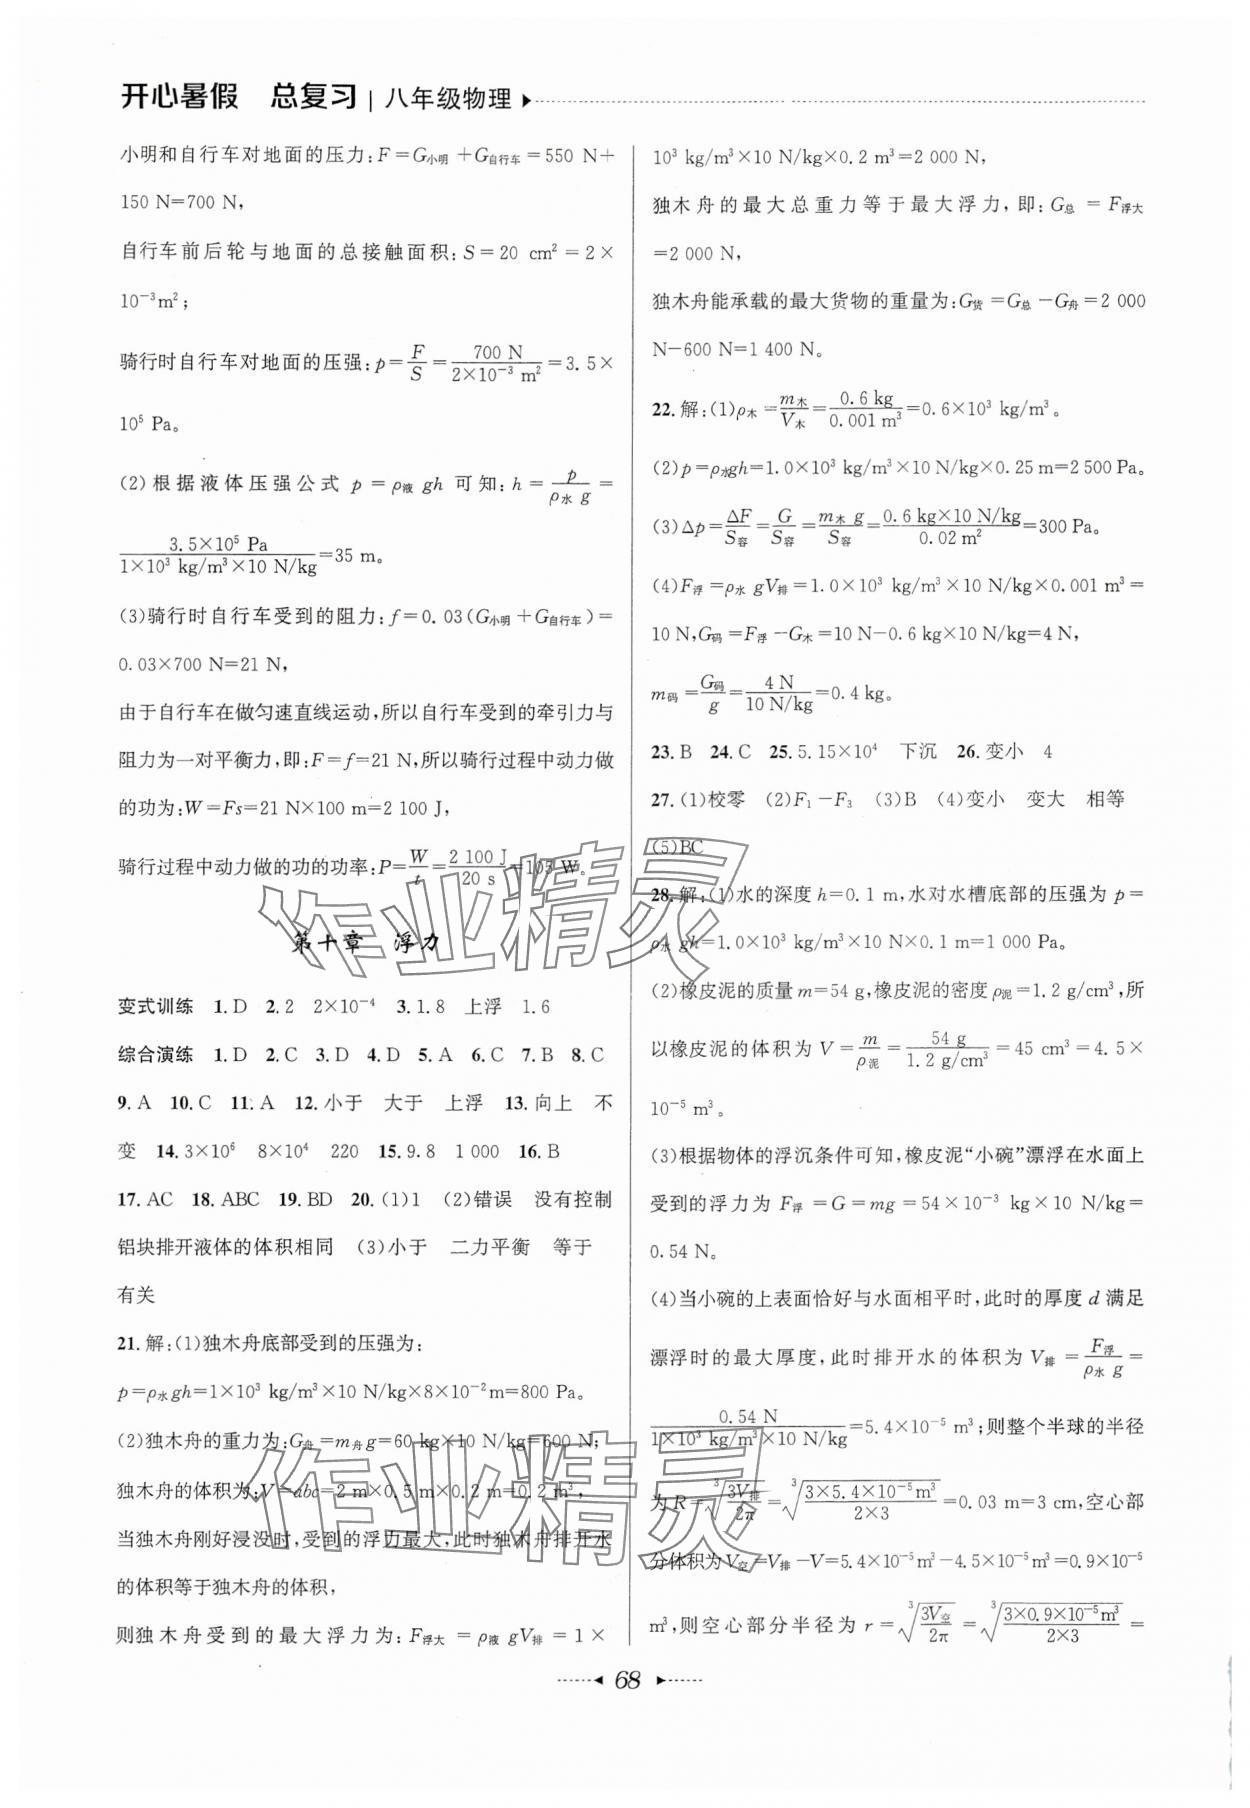 开心暑假 总复习 | 八年级物理
小明和自行车对地面的压力:F=G小明+G自行车=550 N+
150 N=700 N,
自行车前后轮与地面的总接触面积:S=20 cm²=2×
10⁻³m²;
骑行时自行车对地面的压强:p=F/S=700 N/(2×10⁻³ m²)=3.5×
10⁵ Pa。
(2)根据液体压强公式 p=ρ液 gh 可知:h=p/(ρ水 g)=
3.5×10⁵ Pa/(1×10³ kg/m³×10 N/kg)=35 m。
(3)骑行时自行车受到的阻力:f=0.03(G小明+G自行车)=
0.03×700 N=21 N,
由于自行车在做匀速直线运动,所以自行车受到的牵引力与
阻力为一对平衡力,即:F=f=21 N,所以骑行过程中动力做
的功为:W=Fs=21 N×100 m=2 100 J,
骑行过程中动力做的功的功率:P=W/t=2 100 J/20 s=105 W。
第十章 浮力
变式训练 1.D 2.2 2×10⁻⁴ 3.1.8 上浮 1.6
综合演练 1.D 2.C 3.D 4.D 5.A 6.C 7.B 8.C
9.A 10.C 11.A 12.小于 大于 上浮 13.向上 不
变 14.3×10⁶ 8×10⁴ 220 15.9.8 1 000 16.B
17.AC 18.ABC 19.BD 20.(1)1 (2)错误 没有控制
铝块排开液体的体积相同 (3)小于 二力平衡 等于
有关
21.解:(1)独木舟底部受到的压强为:
p=ρ水gh=1×10³ kg/m³×10 N/kg×8×10⁻²m=800 Pa。
(2)独木舟的重力为:G舟=m舟g=60 kg×10 N/kg=600 N;
独木舟的体积为:V=abc=2 m×0.5 m×0.2 m=0.2 m³,
当独木舟刚好浸没时,受到的浮力最大,此时独木舟排开水
的体积等于独木舟的体积,
则独木舟受到的最大浮力为:F浮大=ρ液 gV排=1×
10³ kg/m³×10 N/kg×0.2 m³=2 000 N,
独木舟的最大总重力等于最大浮力,即:G总=F浮大
=2 000 N,
独木舟能承载的最大货物的重量为:G货=G总-G舟=2 000
N-600 N=1 400 N。
22.解:(1)ρ木=m木/V木=0.6 kg/0.001 m³=0.6×10³ kg/m³。
(2)p=ρ水gh=1.0×10³ kg/m³×10 N/kg×0.25 m=2 500 Pa。
(3)Δp=ΔF/S容=G/S容=m木 g/S容=0.6 kg×10 N/kg/0.02 m²=300 Pa。
(4)F浮=ρ水 gV排=1.0×10³ kg/m³×10 N/kg×0.001 m³=
10 N,G码=F浮-G木=10 N-0.6 kg×10 N/kg=4 N,
m码=G码/g=4 N/(10 N/kg)=0.4 kg。
23.B 24.C 25.5.15×10⁴ 下沉 26.变小 4
27.(1)校零 (2)F₁-F₃ (3)B (4)变小 变大 相等
(5)BC
28.解:(1)水的深度 h=0.1 m,水对水槽底部的压强为 p=
ρ水 gh=1.0×10³ kg/m³×10 N×0.1 m=1 000 Pa。
(2)橡皮泥的质量 m=54 g,橡皮泥的密度 ρ泥=1.2 g/cm³,所
以橡皮泥的体积为 V=m/ρ泥=54 g/(1.2 g/cm³)=45 cm³=4.5×
10⁻⁵ m³。
(3)根据物体的浮沉条件可知,橡皮泥“小碗”漂浮在水面上
受到的浮力为 F浮=G=mg=54×10⁻³ kg×10 N/kg=
0.54 N。
(4)当小碗的上表面恰好与水面相平时,此时的厚度 d 满足
漂浮时的最大厚度,此时排开水的体积为 V排=F浮/(ρ水 g)=
0.54 N/(1×10³ kg/m³×10 N/kg)=5.4×10⁻⁵ m³;则整个半球的半径
为 R=³√(3V排/2π)=³√(3×5.4×10⁻⁵m³/(2×3))=0.03 m=3 cm,空心部
分体积为V空=V排-V=5.4×10⁻⁵m³-4.5×10⁻⁵m³=0.9×10⁻⁵
m³,则空心部分半径为 r=³√(3V空/2π)=³√(3×0.9×10⁻⁵m³/(2×3))=
68
作业精灵
作业精灵